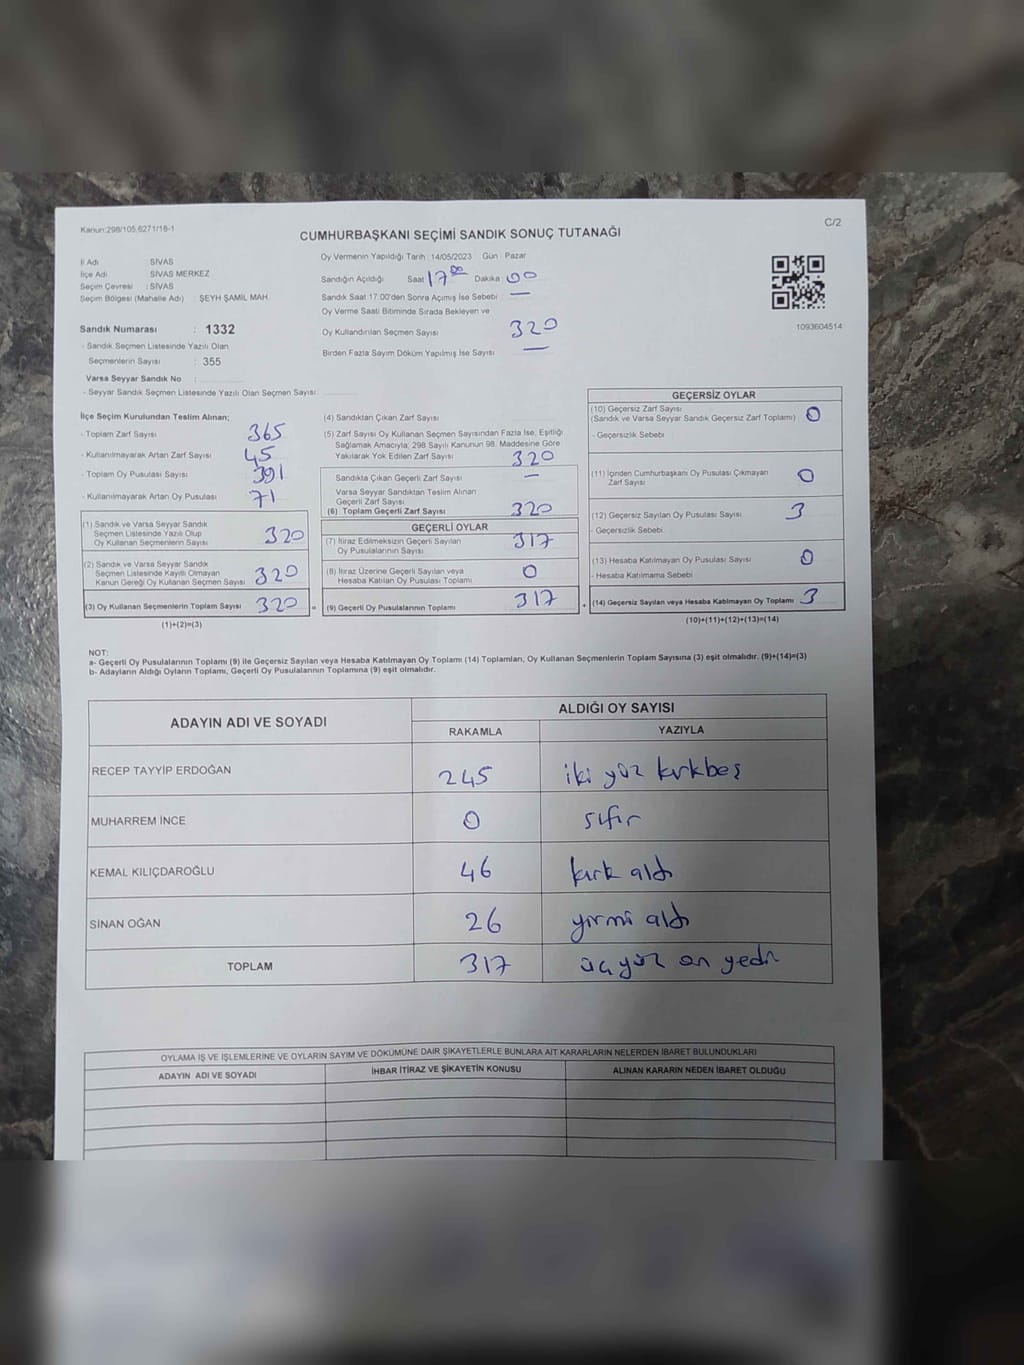 Kanun:298/105,6271/18-1
C/2
CUMHURBAŞKANI SEÇİMİ SANDIK SONUÇ TUTANAĞI
İl Adı : SİVAS
İlçe Adı : SİVAS MERKEZ
Seçim Çevresi : SİVAS
Seçim Bölgesi (Mahalle Adı) : ŞEYH ŞAMİL MAH.
Sandık Numarası : 1332
- Sandık Seçmen Listesinde Yazılı Olan
Seçmenlerin Sayısı : 355
Varsa Seyyar Sandık No :
- Seyyar Sandık Seçmen Listesinde Yazılı Olan Seçmen Sayısı:
Oy Vermenin Yapıldığı Tarih :14/05/2023 Gün : Pazar
Sandığın Açıldığı Saat 17 00 Dakika : 00
Sandık Saat 17:00'den Sonra Açımış İse Sebebi : —
Oy Verme Saati Bitiminde Sırada Bekleyen ve
Oy Kullandırılan Seçmen Sayısı 320
Birden Fazla Sayım Döküm Yapılmış İse Sayısı —
1093604514
İlçe Seçim Kurulundan Teslim Alınan;
- Toplam Zarf Sayısı 365
- Kullanılmayarak Artan Zarf Sayısı 45
- Toplam Oy Pusulası Sayısı 391
- Kullanılmayarak Artan Oy Pusulası 71
(1) Sandık ve Varsa Seyyar Sandık
Seçmen Listesinde Yazılı Olup
Oy Kullanan Seçmenlerin Sayısı 320
(2) Sandık ve Varsa Seyyar Sandık
Seçmen Listesinde Kayıtlı Olmayan
Kanun Gereği Oy Kullanan Seçmen Sayısı 320
(3) Oy Kullanan Seçmenlerin Toplam Sayısı 320 =
(1)+(2)=(3)
(4) Sandıktan Çıkan Zarf Sayısı
(5) Zarf Sayısı Oy Kullanan Seçmen Sayısından Fazla İse, Eşitliği
Sağlamak Amacıyla; 298 Sayılı Kanunun 98. Maddesine Göre
Yakılarak Yok Edilen Zarf Sayısı 320
Sandıkta Çıkan Geçerli Zarf Sayısı —
Varsa Seyyar Sandıktan Teslim Alınan
Geçerli Zarf Sayısı
(6) Toplam Geçerli Zarf Sayısı 320
GEÇERLİ OYLAR
(7) İtiraz Edilmeksizin Geçerli Sayılan
Oy Pusulalarının Sayısı 317
(8) İtiraz Üzerine Geçerli Sayılan veya
Hesaba Katılan Oy Pusulası Toplamı 0
(9) Geçerli Oy Pusulalarının Toplamı 317 +
GEÇERSİZ OYLAR
(10) Geçersiz Zarf Sayısı
(Sandık ve Varsa Seyyar Sandık Geçersiz Zarf Toplamı) 0
- Geçersizlik Sebebi
(11) İçinden Cumhurbaşkanı Oy Pusulası Çıkmayan
Zarf Sayısı 0
(12) Geçersiz Sayılan Oy Pusulası Sayısı 3
- Geçersizlik Sebebi
(13) Hesaba Katılmayan Oy Pusulası Sayısı 0
- Hesaba Katılmama Sebebi
(14) Geçersiz Sayılan veya Hesaba Katılmayan Oy Toplamı 3
(10)+(11)+(12)+(13)=(14)
NOT:
a- Geçerli Oy Pusulalarının Toplamı (9) ile Geçersiz Sayılan veya Hesaba Katılmayan Oy Toplamı (14) Toplamları, Oy Kullanan Seçmenlerin Toplam Sayısına (3) eşit olmalıdır. (9)+(14)=(3)
b- Adayların Aldığı Oyların Toplamı, Geçerli Oy Pusulalarının Toplamına (9) eşit olmalıdır.
ADAYIN ADI VE SOYADI
ALDIĞI OY SAYISI
RAKAMLA YAZIYLA
RECEP TAYYİP ERDOĞAN 245 iki yüz kırkbeş
MUHARREM İNCE 0 sıfır
KEMAL KILIÇDAROĞLU 46 kırk altı
SİNAN OĞAN 26 yirmi altı
TOPLAM 317 üç yüz on yedi
OYLAMA İŞ VE İŞLEMLERİNE VE OYLARIN SAYIM VE DÖKÜMÜNE DAİR ŞİKAYETLERLE BUNLARA AİT KARARLARIN NELERDEN İBARET BULUNDUKLARI
ADAYIN ADI VE SOYADI İHBAR İTİRAZ VE ŞİKAYETİN KONUSU ALINAN KARARIN NEDEN İBARET OLDUĞU